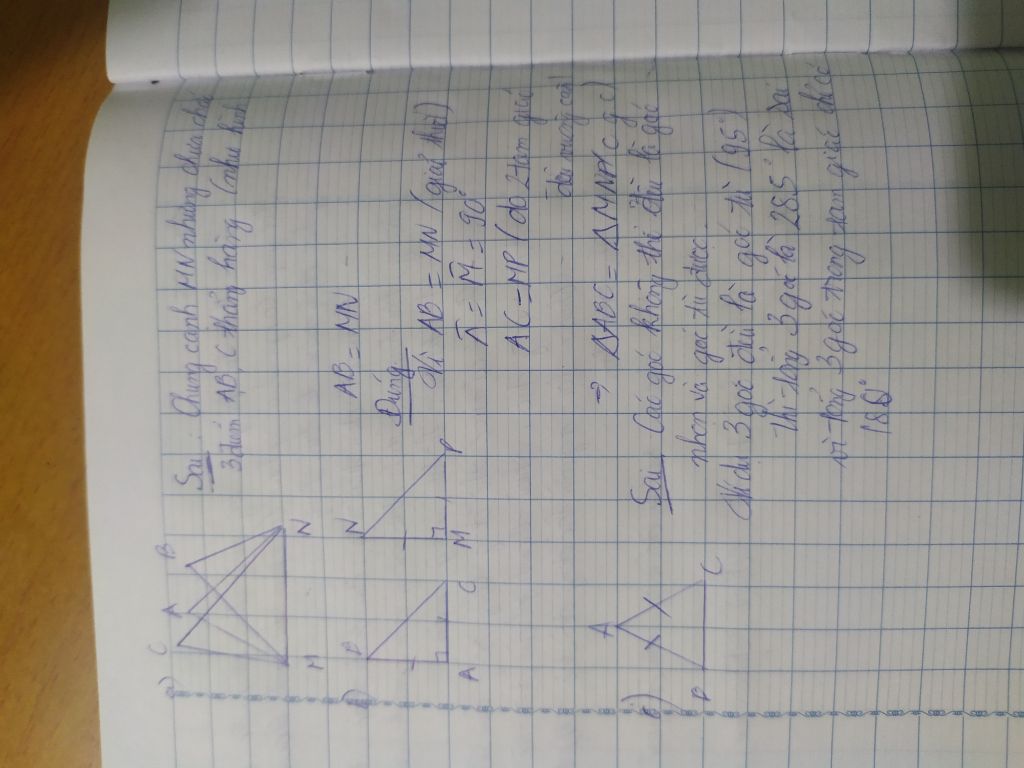 a)
C A B
M N
Sai: Chung cạnh MN nhưng chưa chắc
3 điểm A, B, C thẳng hàng (như hình
b)
B N
A C M P
AB = MN
Đúng
Vì AB = MN (giả thiết)
A = M = 90°
AC = MP (do 2 tam giác
đều vuông cân)
→ ΔABC = ΔMNP (c g c)
c)
A
B C
Sai Các góc không thể đều là góc
nhọn và góc tù được.
(Ví dụ 3 góc đều là góc tù (95°)
thì tổng 3 góc là 285° là sai
vì tổng 3 góc trong tam giác chỉ có
180°